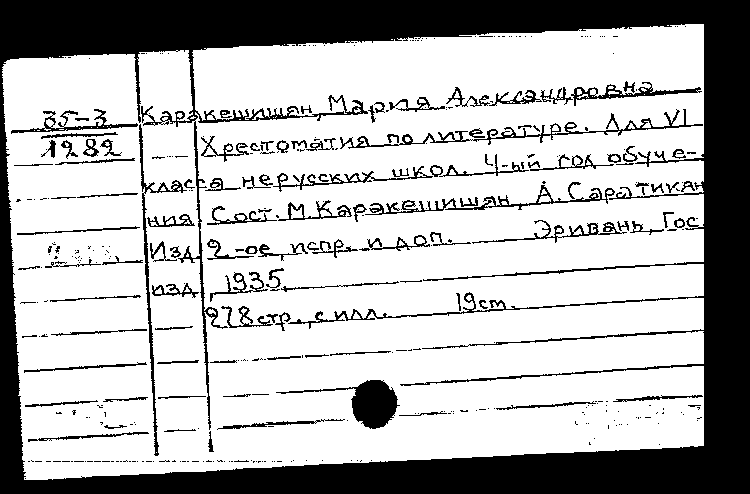 35-3
1282
Каракешишян, Мария Александровна
Хрестоматия по литературе. Для VI
класса нерусских школ. 4-ый год обуче-
ния. Сост. М. Каракешишян, А. Саратикян
Изд. 2-ое, испр. и доп. Эривань, Гос.
изд., 1935.
278 стр., с илл. 19 cm.